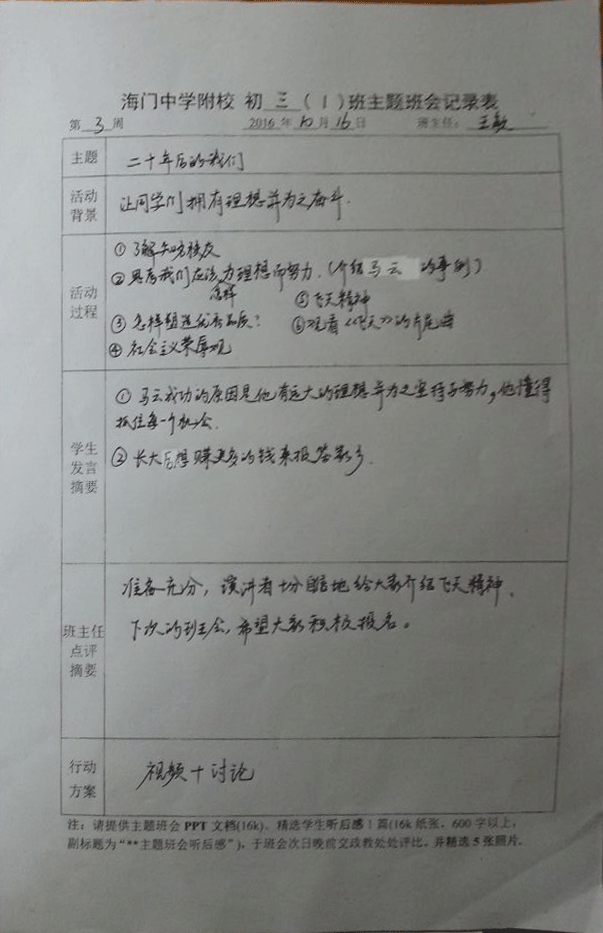 海门中学附校 初 三 (1)班主题班会记录表
第 3 周 2016 年 10 月 16 日 班主任: 王敏
主题 二十年后的我们
活动背景 让同学们拥有理想并为之奋斗.
活动过程
① 了解知名校友
② 思考我们应该为理想而努力. (介绍马云 的事例)
怎样 ⑤ 飞天精神
③ 怎样塑造优秀品质? ⑥ 观看《飞天》的片尾曲
④ 社会主义荣辱观
学生发言摘要
① 马云成功的原因是他有远大的理想并为之坚持与努力,他懂得
抓住每一个机会.
② 长大后想赚更多的钱来报答家乡.
班主任点评摘要
准备充分, 演讲者十分自信地给大家介绍飞天精神.
下次的班会, 希望大家积极报名。
行动方案 视频+讨论
注: 请提供主题班会PPT 文档(16k)、精选学生听后感1篇(16k 纸张、600 字以上,
副标题为“**主题班会听后感”), 于班会次日晚前交政教处处评比。并精选5张照片.